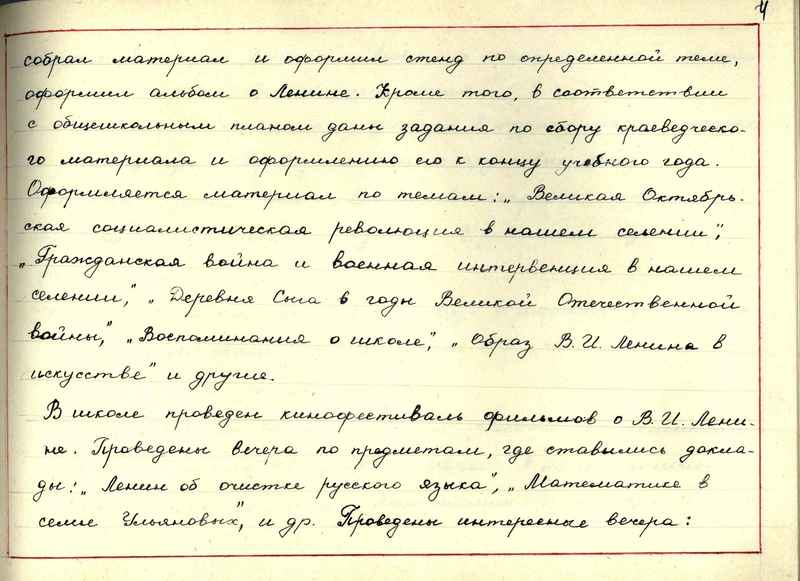 4
собрал материал и оформил стенд по определенной теме,
оформил альбом о Ленине. Кроме того, в соответствии
с общешкольным планом даны задания по сбору краеведческо-
го материала и оформлению его к концу учебного года.
Оформляется материал по темам: „Великая Октябрь-
ская социалистическая революция в нашем селении",
„Гражданская война и военная интервенция в нашем
селении", „Деревня Сыга в годы Великой Отечественной
войны", „Воспоминания о школе", „Образ В.И. Ленина в
искусстве" и другие.
В школе проведен кинофестиваль фильмов о В.И. Лени-
не. Проведены вечера по предметам, где ставились докла-
ды: „Ленин об очистке русского языка", „Математике в
семье Ульяновых", и др. Проведены интересные вечера: